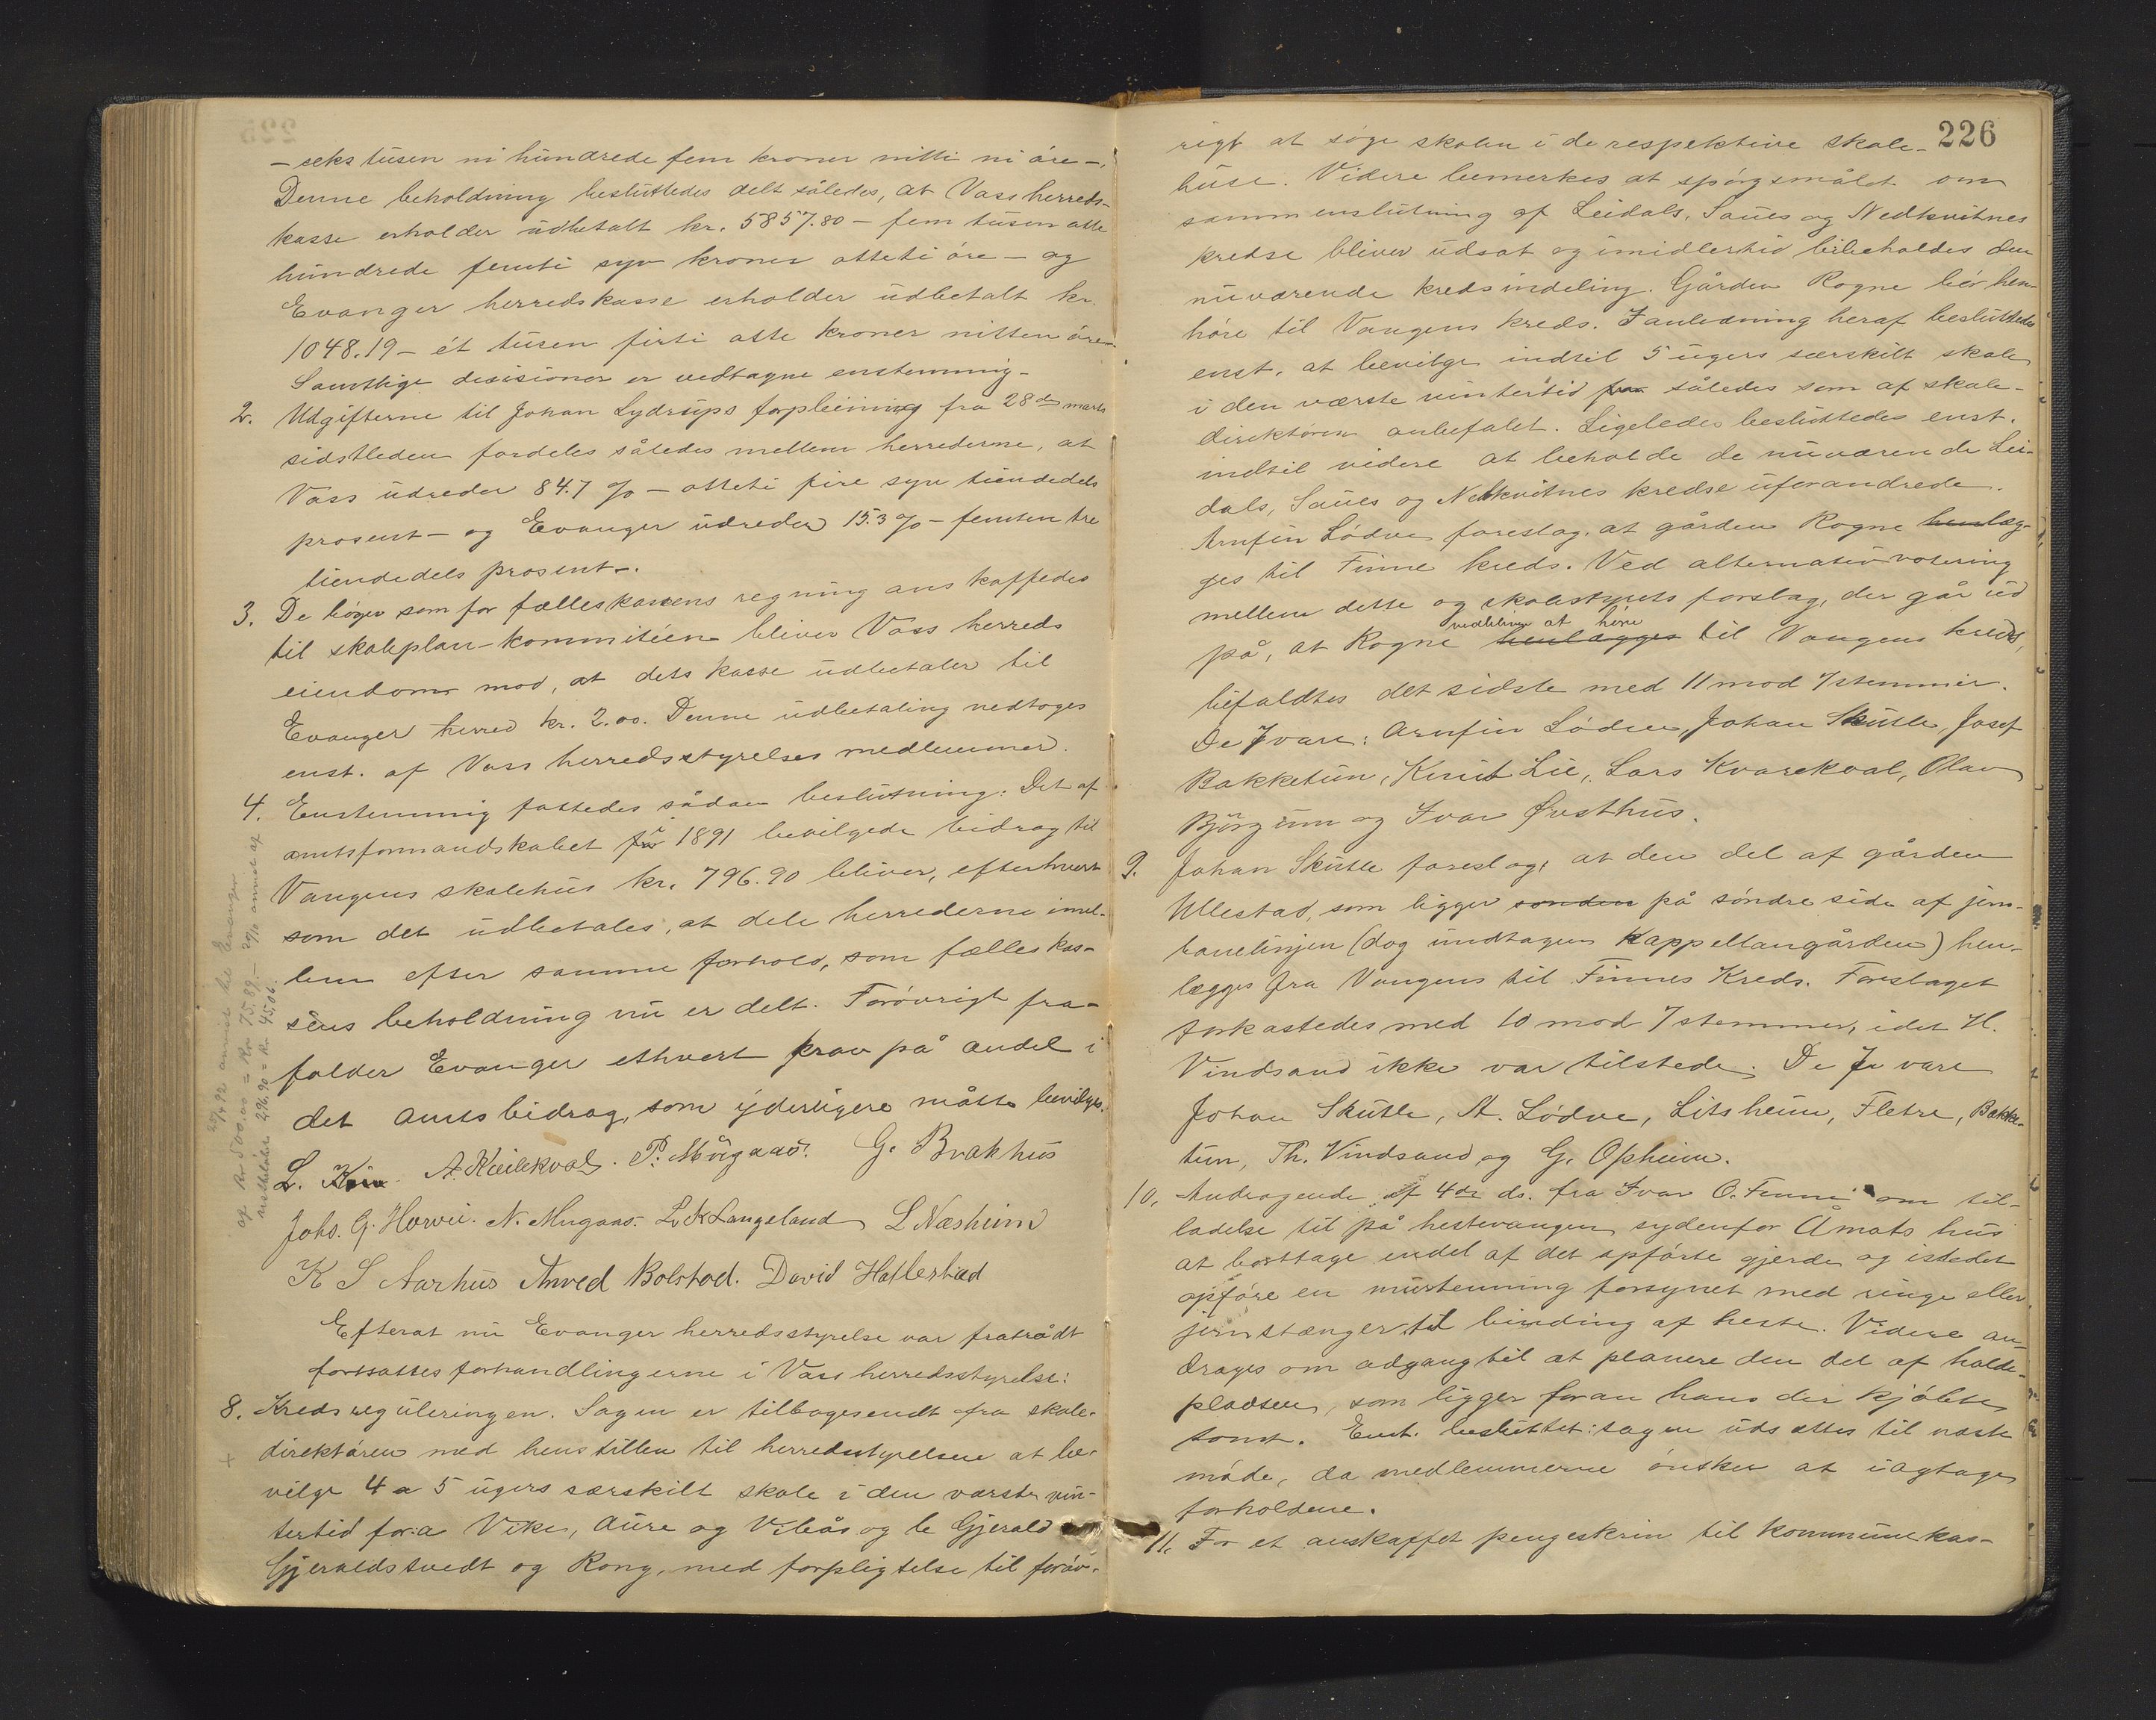 — seks tusen ni hundrede fem kroner nitti ni øre —,
Denne beholdning besluttedes delt således, at Vass herreds-
kasse erholder udbetalt kr. 5857.80 — fem tusen otte
hundrede femti syv kroner otteti øre — og
Evanger herredskasse erholder udbetalt kr.
1048.19 — ét tusen firti otte kroner nitten øre —
Samtlige desisioner er vedtagne enstemmig —
2. Udgifterne til Johan Lydrups forpleining fra 28de marts
sidstleden fordeles således mellem herrederne, at
Vass udreder 84.7 % — otteti fire syv tiendedels
prosent — og Evanger udreder 15.3 % — femten tre
tiendedels prosent —.
3. De bøger som for fælleskassens regning anskaffedes
til skoleplan-kommitéen bliver Voss herreds
eiendom mod, at dets kasse udbetaler til
Evanger herred kr. 2.00. Denne udbetaling vedtoges
enst. af Vass herredsstyrelses medlemmer.
4. Enstemmig fattedes sådan beslutning: Det af
amtsformandskabet for 1891 bevilgede bidrag til
Vangens skolehus kr. 796.90 bliver, efterhvert
som det udbetales, at dele herrederne imel-
lem efter samme forhold, som fælleskas-
sens beholdning nu er delt. Forøvrigt fra-
falder Evanger ethvert krav på andel i
det amtsbidrag, som yderligere måtte bevilges.
27/4 92 anvist til Evanger
af Kr 500,00 = Kr 75.89.— 29/10 anvist af
restbeløbet 296.90 = Kr 45.06.
L. Kvia. A. Kvilekval. P. Mugaas. G. Brakhus
Johs. G. Horvei. N. Mugaas. L K Langeland L Næsheim
K S Aarhus Anved Bolstad. David Hallestad
Efterat nu Evanger herredsstyrelse var fratrådt
fortsattes forhandlingerne i Vass herredsstyrelse:
8. Kredsreguleringen. Sagen er tilbagesendt fra skole-
direktøren med henstillen til herredsstyrelsen at be-
vilge 4 a 5 ugers særskilt skole i den værste vin-
tertid for: a Vike, Aure og Vibås og b Gjerald
Gjeraldstvedt og Rong, med forpligtelse til forøv-
226
rigt at søge skolen i de respektive skole-
huse. Videre bemerkes at spørgsmålet om
sammenslutning af Leidals, Saues og Nedkvitnes
kredse bliver udsat og imidlertid bibeholdes den
nuværende kredsindeling. Gården Rogne bør hen-
høre til Vangens kreds. I anledning heraf besluttedes
enst. at bevilge indtil 5 ugers særskilt skole
i den værste vintertid for således som af skole-
direktøren anbefalet. Ligeledes besluttedes enst.
indtil videre at beholde de nuværende Lei-
dals, Saues og Nedkvitnes kredse uforandrede.
Arnfin Lødve foreslog, at gården Rogne henlæg-
ges til Finne kreds. Ved alternativ votering
mellem dette og skolestyrets forslag, der går ud
vedbliver at høre
på, at Rogne henlægges til Vangens kreds,
bifaldtes det sidste med 11 mod 7 stemmer.
De 7 vare: Arnfin Lødve, Johan Skutle, Josef
Bakketun, Knut Lie, Lars Kvarekval, Olav
Bjørgum og Ivar Øvsthus.
9. Johan Skutle foreslog, at den del af gården
Ullestad, som ligger sønden på søndre side af jern-
banelinjen (dog undtagen Kappellangården) hen-
lægges fra Vangens til Finnes Kreds. Forslaget
forkastedes med 10 mod 7 stemmer, idet H.
Vindsand ikke var tilstede. De 7 vare
Johan Skutle, A. Lødve, Litsheim, Fletre, Bakke-
tun, Th. Vindsand og G. Opheim.
10. Andragende af 4de ds. fra Ivar O. Finne om til-
ladelse til på hestevangen sydenfor Åmots hus
at borttage endel af det opførte gjerde og istedet
opføre en murstenning forsynet med ringe eller
jernstænger til binding af heste. Videre an-
drages om adgang til at planere den del af holde-
pladsen, som ligger foran hans der kjøbte
tomt. Enst. besluttet: sagen udsættes til næste
møde, da medlemmerne ønsker at iagtage
forholdene.
11. For et anskaffet pengeskrin til kommunekas-